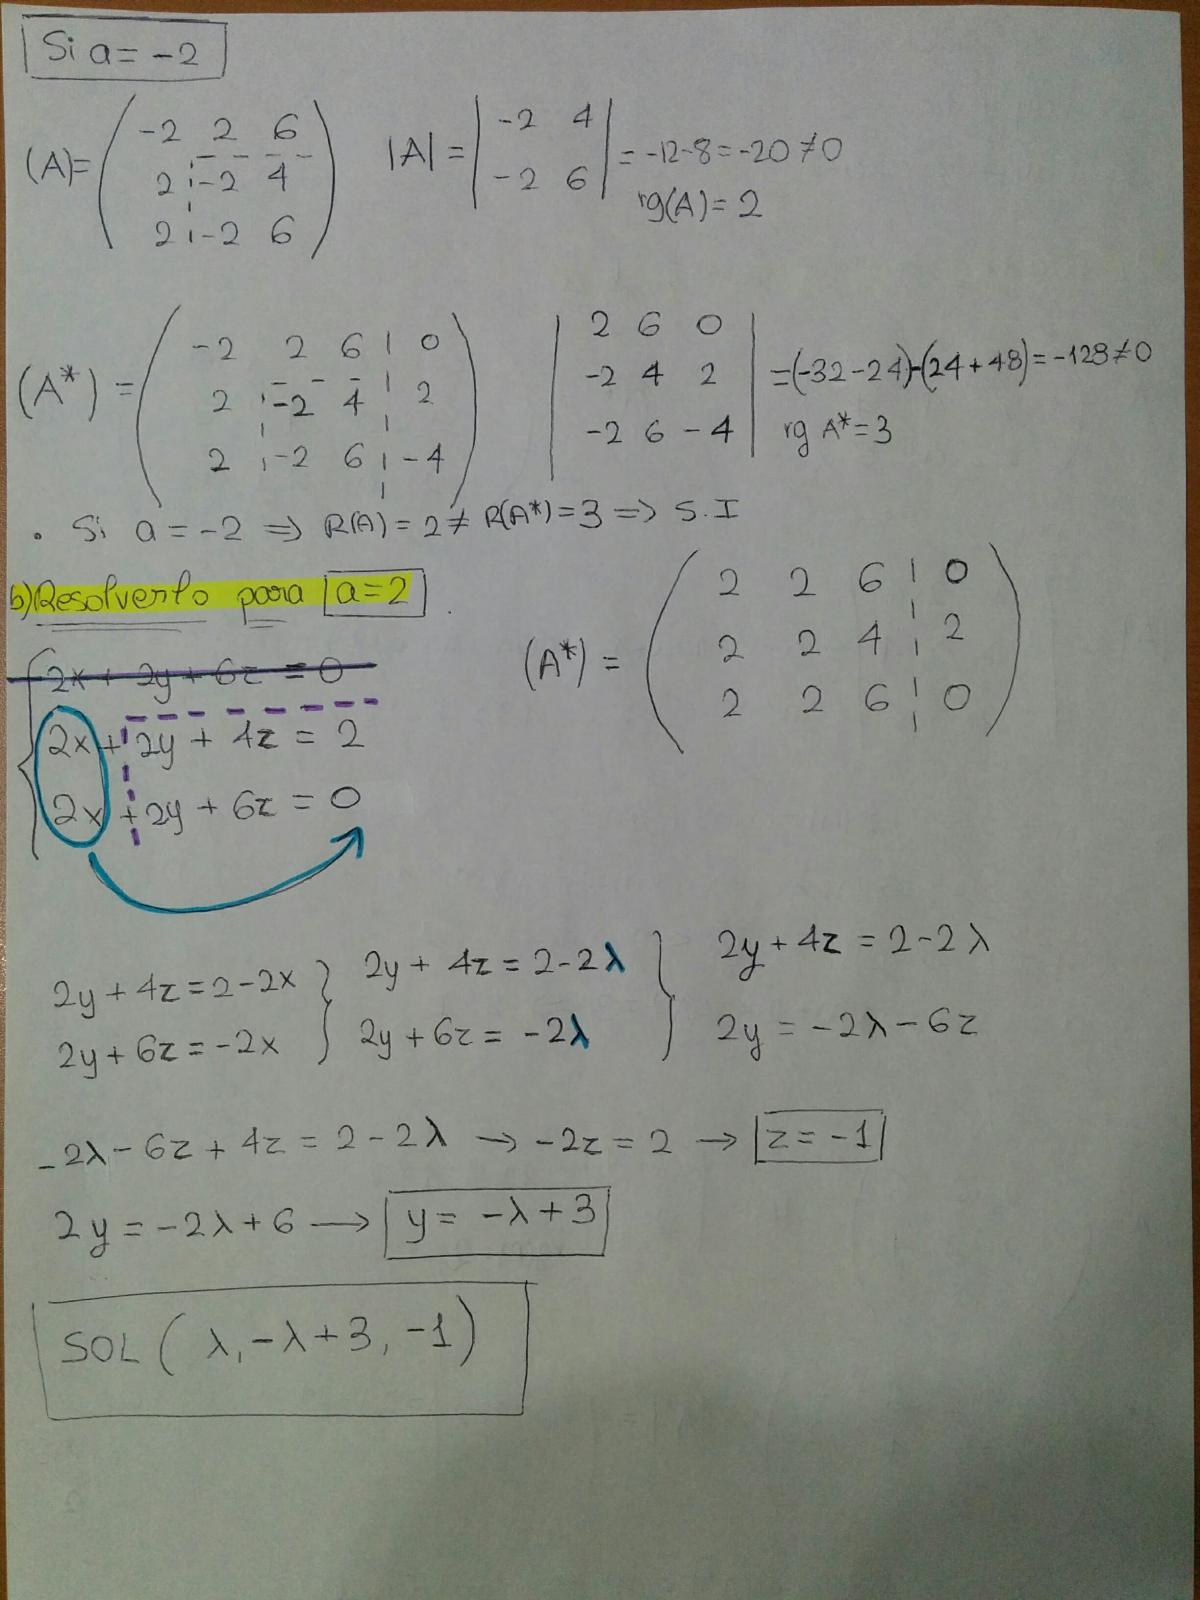 Si a = -2
(A)= ( -2 2 6 |A| = | -2 4
2 -2 4 -2 6 | = -12-8 = -20 ≠ 0
2 -2 6 ) rg(A) = 2
(A*) = ( -2 2 6 | 0 | 2 6 0
2 -2 4 | 2 -2 4 2 = (-32-24)-(24+48) = -128 ≠ 0
2 -2 6 | -4 ) -2 6 -4 | rg A* = 3
• Si a = -2 ⇒ R(A) = 2 ≠ R(A*) = 3 ⇒ S.I
b) Resolverlo para a=2
(A*) = ( 2 2 6 | 0
2 2 4 | 2
2 2 6 | 0 )
2x + 2y + 6z = 0
2x + 2y + 4z = 2
2x + 2y + 6z = 0
2y + 4z = 2 - 2x } 2y + 4z = 2 - 2λ } 2y + 4z = 2 - 2λ
2y + 6z = -2x 2y + 6z = -2λ 2y = -2λ - 6z
-2λ - 6z + 4z = 2 - 2λ → -2z = 2 → z = -1
2y = -2λ + 6 → y = -λ + 3
SOL ( λ, -λ + 3, -1 )